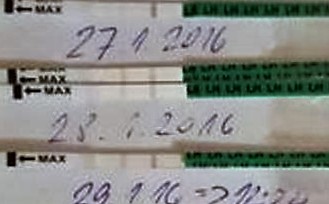 ←MAX LH LH LH LH LH LH
27 1 2016
←MAX
←MAX LH LH LH LH LH LH
28. 1. 2016
←MAX LH LH LH LH LH LH
29 1 16 =>